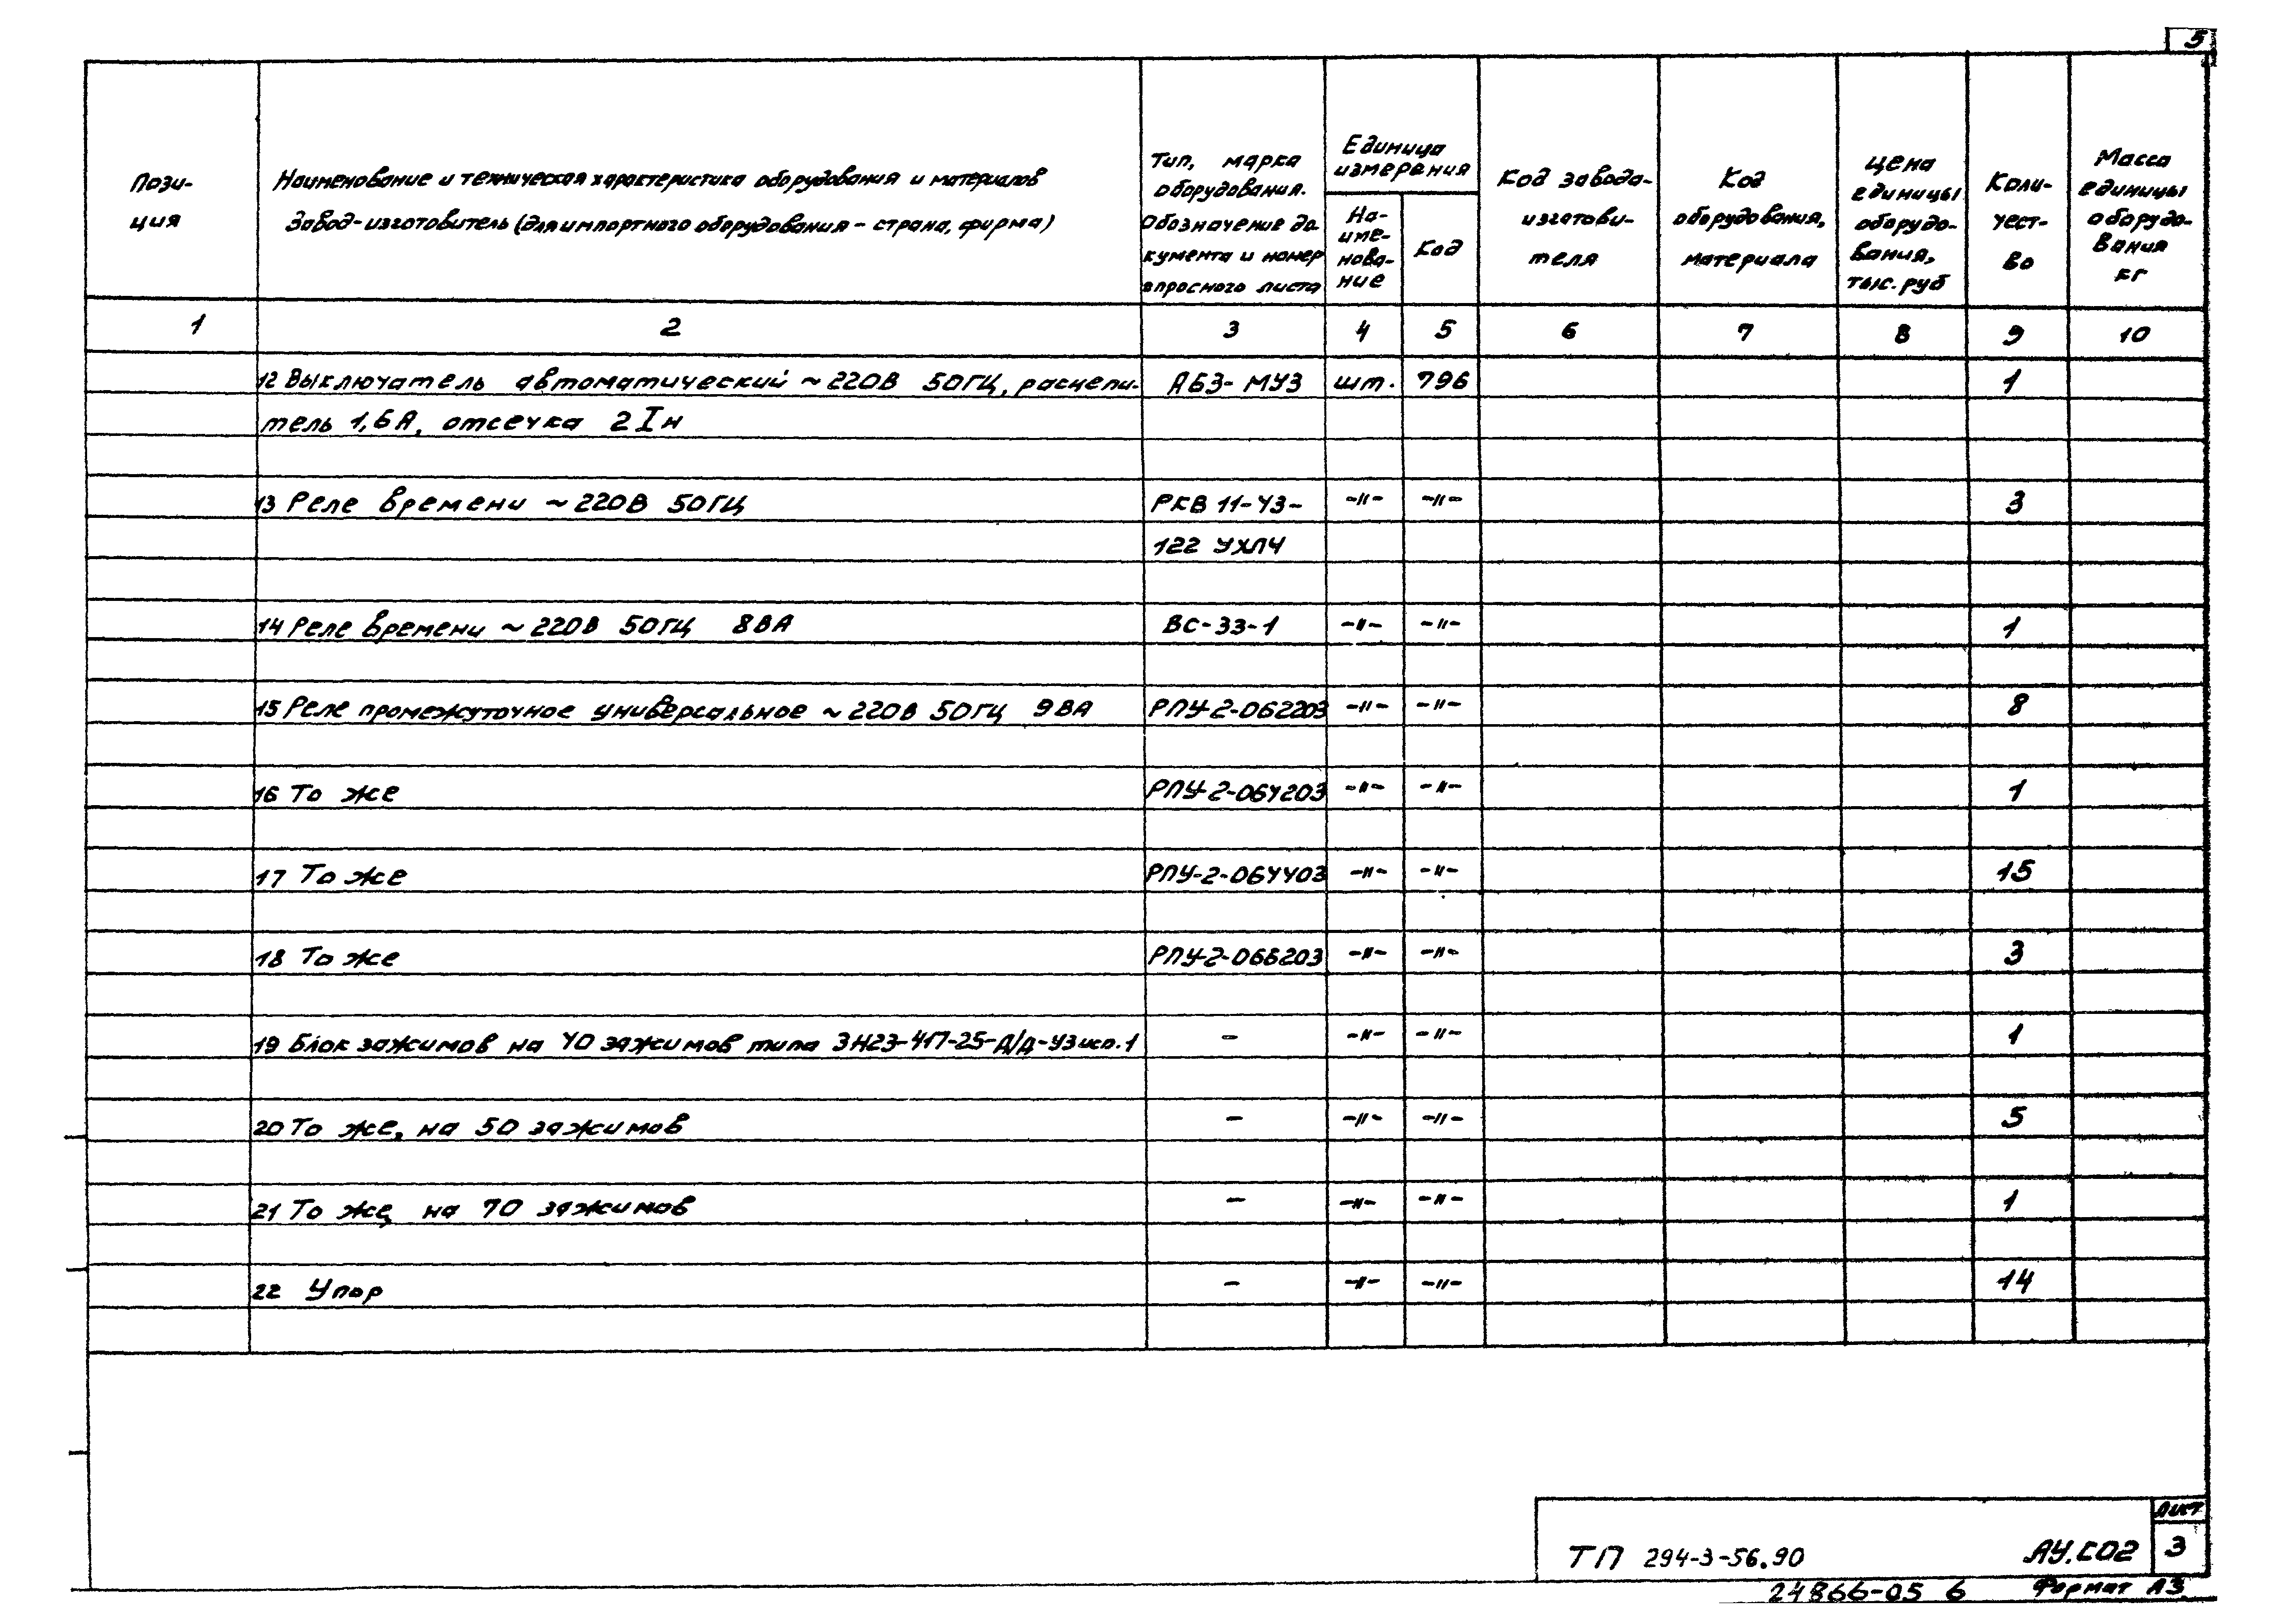 5
Пози-
ция
Наименование и техническая характеристика оборудования и материалов
Завод-изготовитель (для импортного оборудования - страна, фирма)
Тип, марка
оборудования.
Обозначение до
кумента и номер
опросного листа
Единица
измерения
На-
име-
нова-
ние
Код
Код завода-
изготови-
теля
Код
оборудования,
материала
Цена
единицы
оборудо-
вания,
тыс. руб
Коли-
чест-
во
Масса
единицы
оборудо-
вания
кг
1 2 3 4 5 6 7 8 9 10
12 Выключатель автоматический ~ 220В 50ГЦ, расцепи- АБ3-МУ3 шт. 796 1
тель 1,6А, отсечка 2Iн
13 Реле времени ~ 220В 50ГЦ РКВ 11-43- -"- -"- 3
122 УХЛ4
14 Реле времени ~ 220В 50ГЦ 8ВА ВС-33-1 -"- -"- 1
15 Реле промежуточное универсальное ~ 220В 50ГЦ 9ВА РПУ-2-062203 -"- -"- 8
16 То же РПУ-2-064203 -"- -"- 1
17 То же РПУ-2-064403 -"- -"- 15
18 То же РПУ-2-066203 -"- -"- 3
19 Блок зажимов на 40 зажимов типа ЗН23-4П-25-Д/Д-У3 исп.1 - -"- -"- 1
20 То же, на 50 зажимов - -"- -"- 5
21 То же, на 70 зажимов - -"- -"- 1
22 Упор - -"- -"- 14
ТП 294-3-56.90 АУ.СО2
Лист
3
24866-05 6 Формат А3